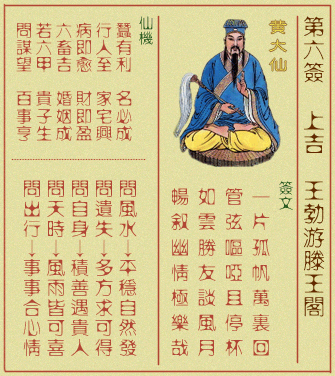 第六簽 上吉 王勃游滕王閣
黄大仙
簽文
一片孤帆萬裏回
管弦嘔啞且停杯
如雲勝友談風月
暢叙幽情極樂哉
仙機
蠶有利 名必成
行人至 家宅興
病即愈 財即盈
六畜吉 婚姻成
若六甲 貴子生
問謀望 百事亨
問風水→平穩自然發
問遺失→多方求可得
問自身→積善遇貴人
問天時→風雨皆可喜
問出行→事事合心情